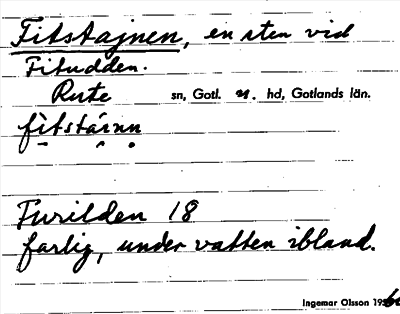 Fitstajnen, en sten vid
Fitudden.
Rute sn, Gotl. n. hd, Gotlands län.
fìtstáinn
Furilden 18
farlig, under vatten ibland.
Ingemar Olsson 19